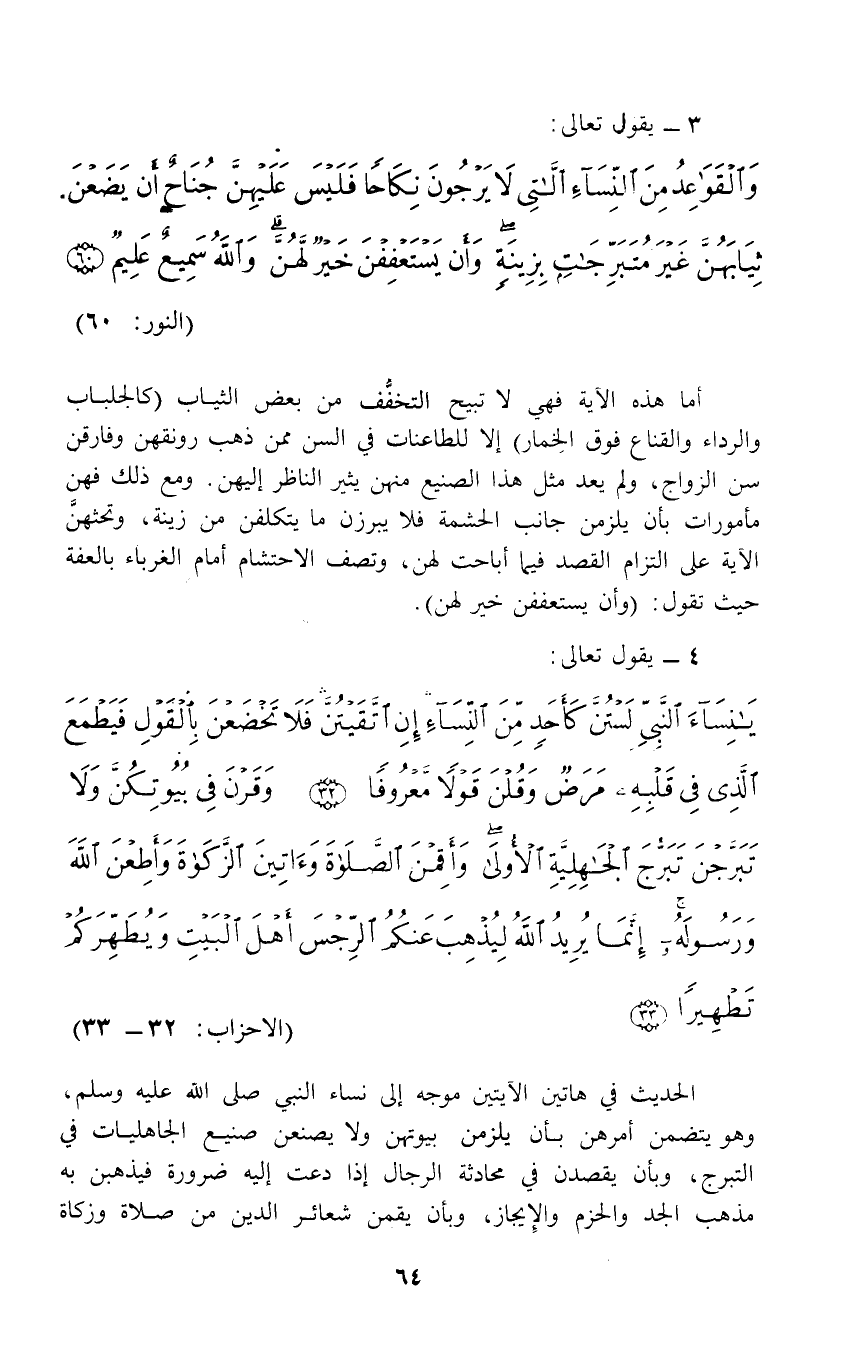 ٣ ــ يقول تعالى:
وَٱلْقَوَٰعِدُ مِنَ ٱلنِّسَآءِ ٱلَّٰتِى لَا يَرْجُونَ نِكَاحًا فَلَيْسَ عَلَيْهِنَّ جُنَاحٌ أَن يَضَعْنَ
ثِيَابَهُنَّ غَيْرَ مُتَبَرِّجَٰتٍۭ بِزِينَةٍۖ وَأَن يَسْتَعْفِفْنَ خَيْرٌ لَّهُنَّۗ وَٱللَّهُ سَمِيعٌ عَلِيمٌ ٦٠
(النور: ٦٠)
أما هذه الآية فهي لا تبيح التخفُّف من بعض الثياب (كالجلباب
والرداء والقناع فوق الخمار) إلا للطاعنات في السن ممن ذهب رونقهن وفارقن
سن الزواج، ولم يعد مثل هذا الصنيع منهن يثير الناظر إليهن. ومع ذلك فهن
مأمورات بأن يلزمن جانب الحشمة فلا يبرزن ما يتكلفن من زينة، وتحثهنَّ
الآية على التزام القصد فيما أباحت لهن، وتصف الاحتشام أمام الغرباء بالعفة
حيث تقول: (وأن يستعففن خير لهن).
٤ ــ يقول تعالى:
يَٰنِسَآءَ ٱلنَّبِيِّ لَسْتُنَّ كَأَحَدٍ مِّنَ ٱلنِّسَآءِ إِنِ ٱتَّقَيْتُنَّ فَلَا تَخْضَعْنَ بِٱلْقَوْلِ فَيَطْمَعَ
ٱلَّذِى فِى قَلْبِهِۦ مَرَضٌ وَقُلْنَ قَوْلًا مَّعْرُوفًا ٣٢ وَقَرْنَ فِى بُيُوتِكُنَّ وَلَا
تَبَرَّجْنَ تَبَرُّجَ ٱلْجَٰهِلِيَّةِ ٱلْأُولَىٰۖ وَأَقِمْنَ ٱلصَّلَوٰةَ وَءَاتِينَ ٱلزَّكَوٰةَ وَأَطِعْنَ ٱللَّهَ
وَرَسُولَهُۥٓۚ إِنَّمَا يُرِيدُ ٱللَّهُ لِيُذْهِبَ عَنكُمُ ٱلرِّجْسَ أَهْلَ ٱلْبَيْتِ وَيُطَهِّرَكُمْ
تَطْهِيرًا ٣٣
(الاحزاب: ٣٢ ــ ٣٣)
الحديث في هاتين الآيتين موجه إلى نساء النبي صلى الله عليه وسلم،
وهو يتضمن أمرهن بأن يلزمن بيوتهن ولا يصنعن صنيع الجاهليات في
التبرج، وبأن يقصدن في محادثة الرجال إذا دعت إليه ضرورة فيذهبن به
مذهب الجد والحزم والإيجاز، وبأن يقمن شعائر الدين من صلاة وزكاة
٦٤